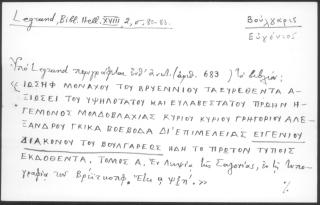 Legrand, Bibl. Hell. XVIII 2, σ. 80-83.
Βούλγαρις
Εὐγένιος
Ὑπὸ Legrand περιγράφεται ὑπ' ἀριθ. (ἀριθ. 683) τὸ βιβλίον:
«ΙΩΣΗΦ ΜΟΝΑΧΟΥ ΤΟΥ ΒΡΥΕΝΝΙΟΥ ΤΑ ΕΥΡΕΘΕΝΤΑ Α-
ΞΙΩΣΕΙ ΤΟΥ ΥΨΗΛΟΤΑΤΟΥ ΚΑΙ ΕΥΛΑΒΕΣΤΑΤΟΥ ΠΡΩΗΝ Η-
ΓΕΜΟΝΟΣ ΜΟΛΔΟΒΛΑΧΙΑΣ ΚΥΡΙΟΥ ΚΥΡΙΟΥ ΓΡΗΓΟΡΙΟΥ ΑΛΕ-
ΞΑΝΔΡΟΥ ΓΚΙΚΑ ΒΟΕΒΟΔΑ ΔΙ' ΕΠΙΜΕΛΕΙΑΣ ΕΥΓΕΝΙΟΥ
ΔΙΑΚΟΝΟΥ ΤΟΥ ΒΟΥΛΓΑΡΕΩΣ ΗΔΗ ΤΟ ΠΡΕΤΟΝ ΤΥΠΟΙΣ
ΕΚΔΟΘΕΝΤΑ. ΤΟΜΟΣ Α. Ἐν Λειψίᾳ τῆς Σαξονίας, ἐν τῇ Τυπο-
γραφίᾳ τοῦ Βρεϊτκόπφ. Ἔτει αψξη΄.»
%